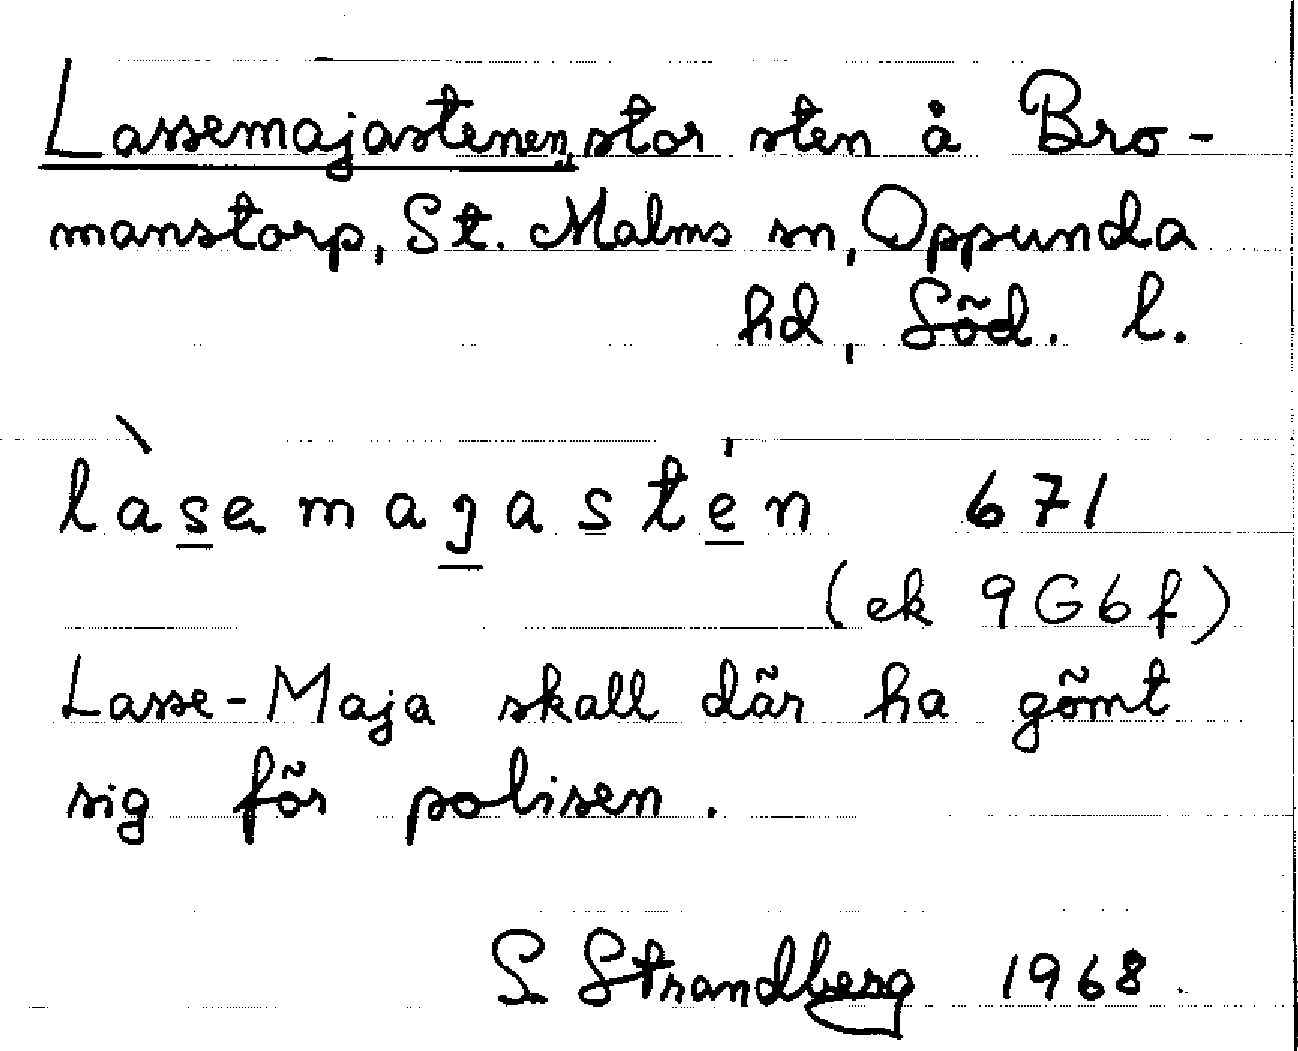 Lassemajastenen, stor sten å Bro-
manstorp, St. Malms sn, Oppunda
hd, Söd. l.
làsemajastén 671
(ek 9G6f)
Lasse-Maja skall där ha gömt
sig för polisen.
S Strandberg 1968